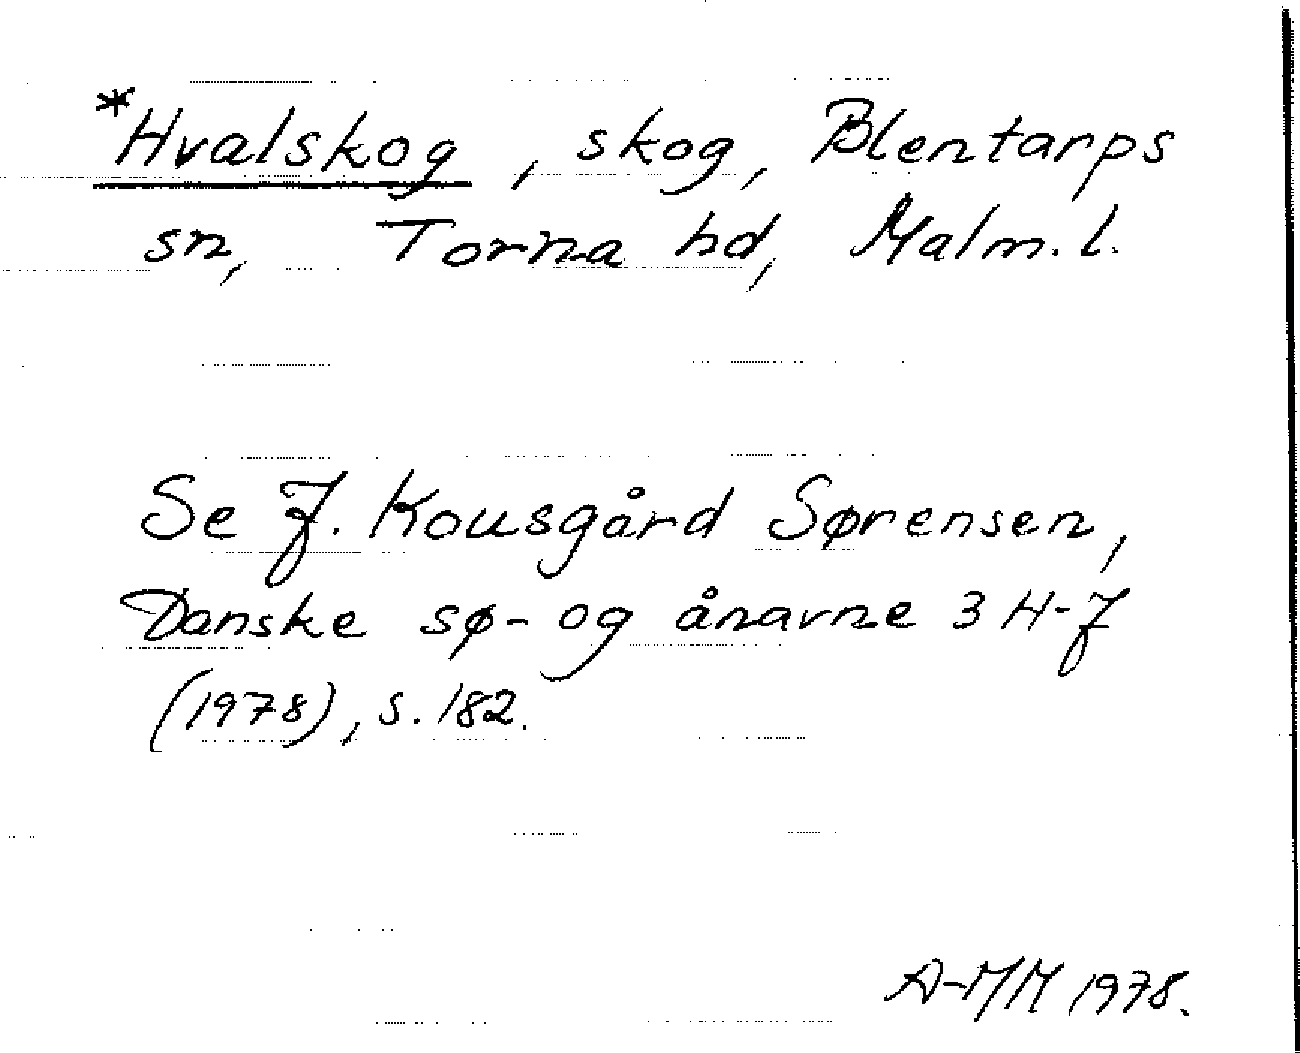 *Hvalskog, skog, Blentarps
sn, Torna hd, Malm. l.
Se J. Kousgård Sørensen,
Danske sø- og ånavne 3 H-J
(1978), s. 182.
A-MM 1978.